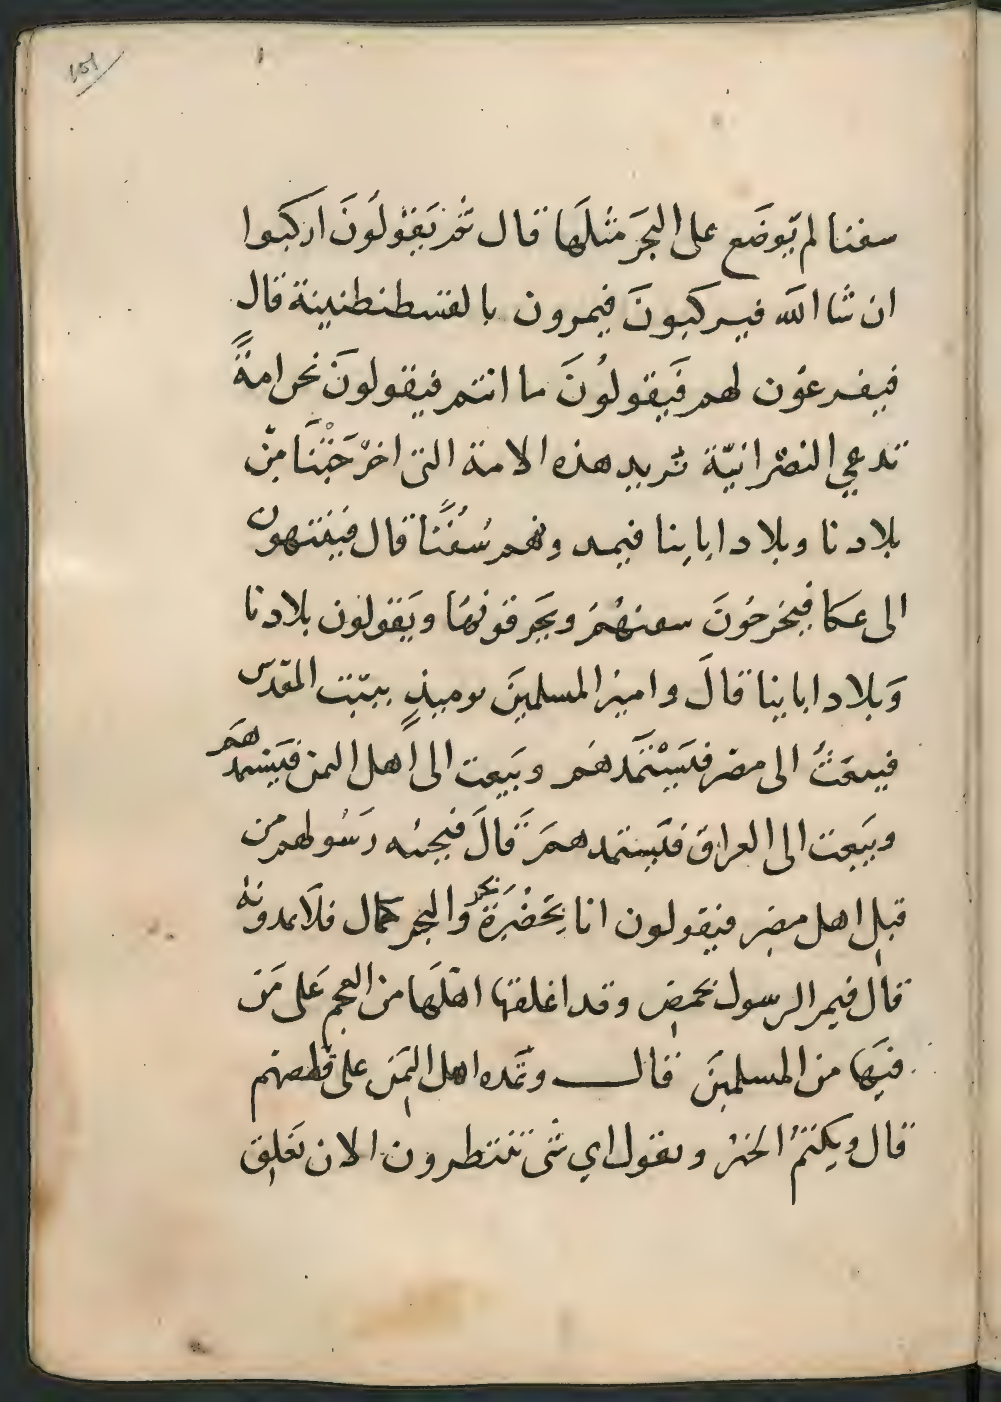 151
سفنا لم يُوضَع على البحرَ مثلَها قال ثمَّ يَقُولُونَ اركبَوا
ان شا الله فيركبونَ فيمرون بالقسطنطنينة قال
فيفرعُون لهم فَيقولُونَ ما انتم فيقولونَ نحن امةً
تدعي النصْرانيّة نُريد هذه الامة التى اخْرَجَتْنَا مِنْ
بلادنا وبلاد اباينا فيمدونهم سُفُنًا قال فينتهون
الى عكا فيخرجُونَ سفنهُمْ ويَحرقونهَا ويَقولون بلادنا
وَبلاد اباينا قالَ وامير المسلمينَ يوميذٍ ببيْت المقدّس
فيبعَثُ الى مصْر فيَسْتَمَدهُم ويَبعث الى اهل اليمن فيَستمدهَم
ويَبعث الى العراق فيَستمدهمَ قَالَ فيجئه رَسُولهم من
قبل اهل مصِر فيقولون انا بحَضْرَة بحر والبحر حمال فلَا يمدونه
قال فيمر الرسول بحمص وقد اغلقها اهلَها من العجم عَلى مَنْ
فيَها من المسلمينَ قال وتمَده اهل اليمَن على قلصهم
قال ويكتمُ الخبْر ويقول اي شَى تنتظرون الان تغلق